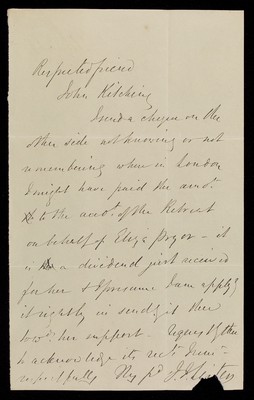 Respected friend
John Kitching
I send a cheque on the
other side not knowing or not
remembering when in London
I might have paid the amot.
to the acct. of the Retreat
on behalf of Eliza Pryor - it
is a dividend just received
for her & I presume I am apply.g
it rightly in send.g it thee
tow.ds her support - Request.g thee
to acknowledge its rect. I rem.n
respectfully Thy f.d J. J.